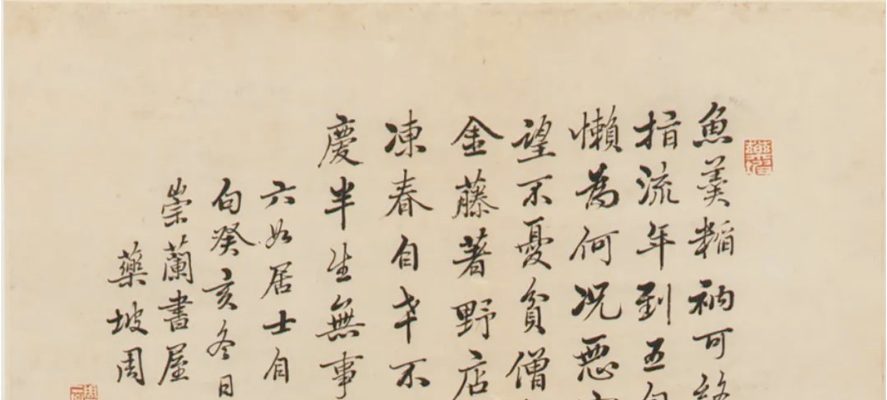 魚羹稻衲可終
指流年到五旬
懶為何況惡
望不憂貧僧
金藤著野店
凍春自幸不
慶半生無事
六如居士自
句癸亥冬日
崇蘭書屋
藥坡周